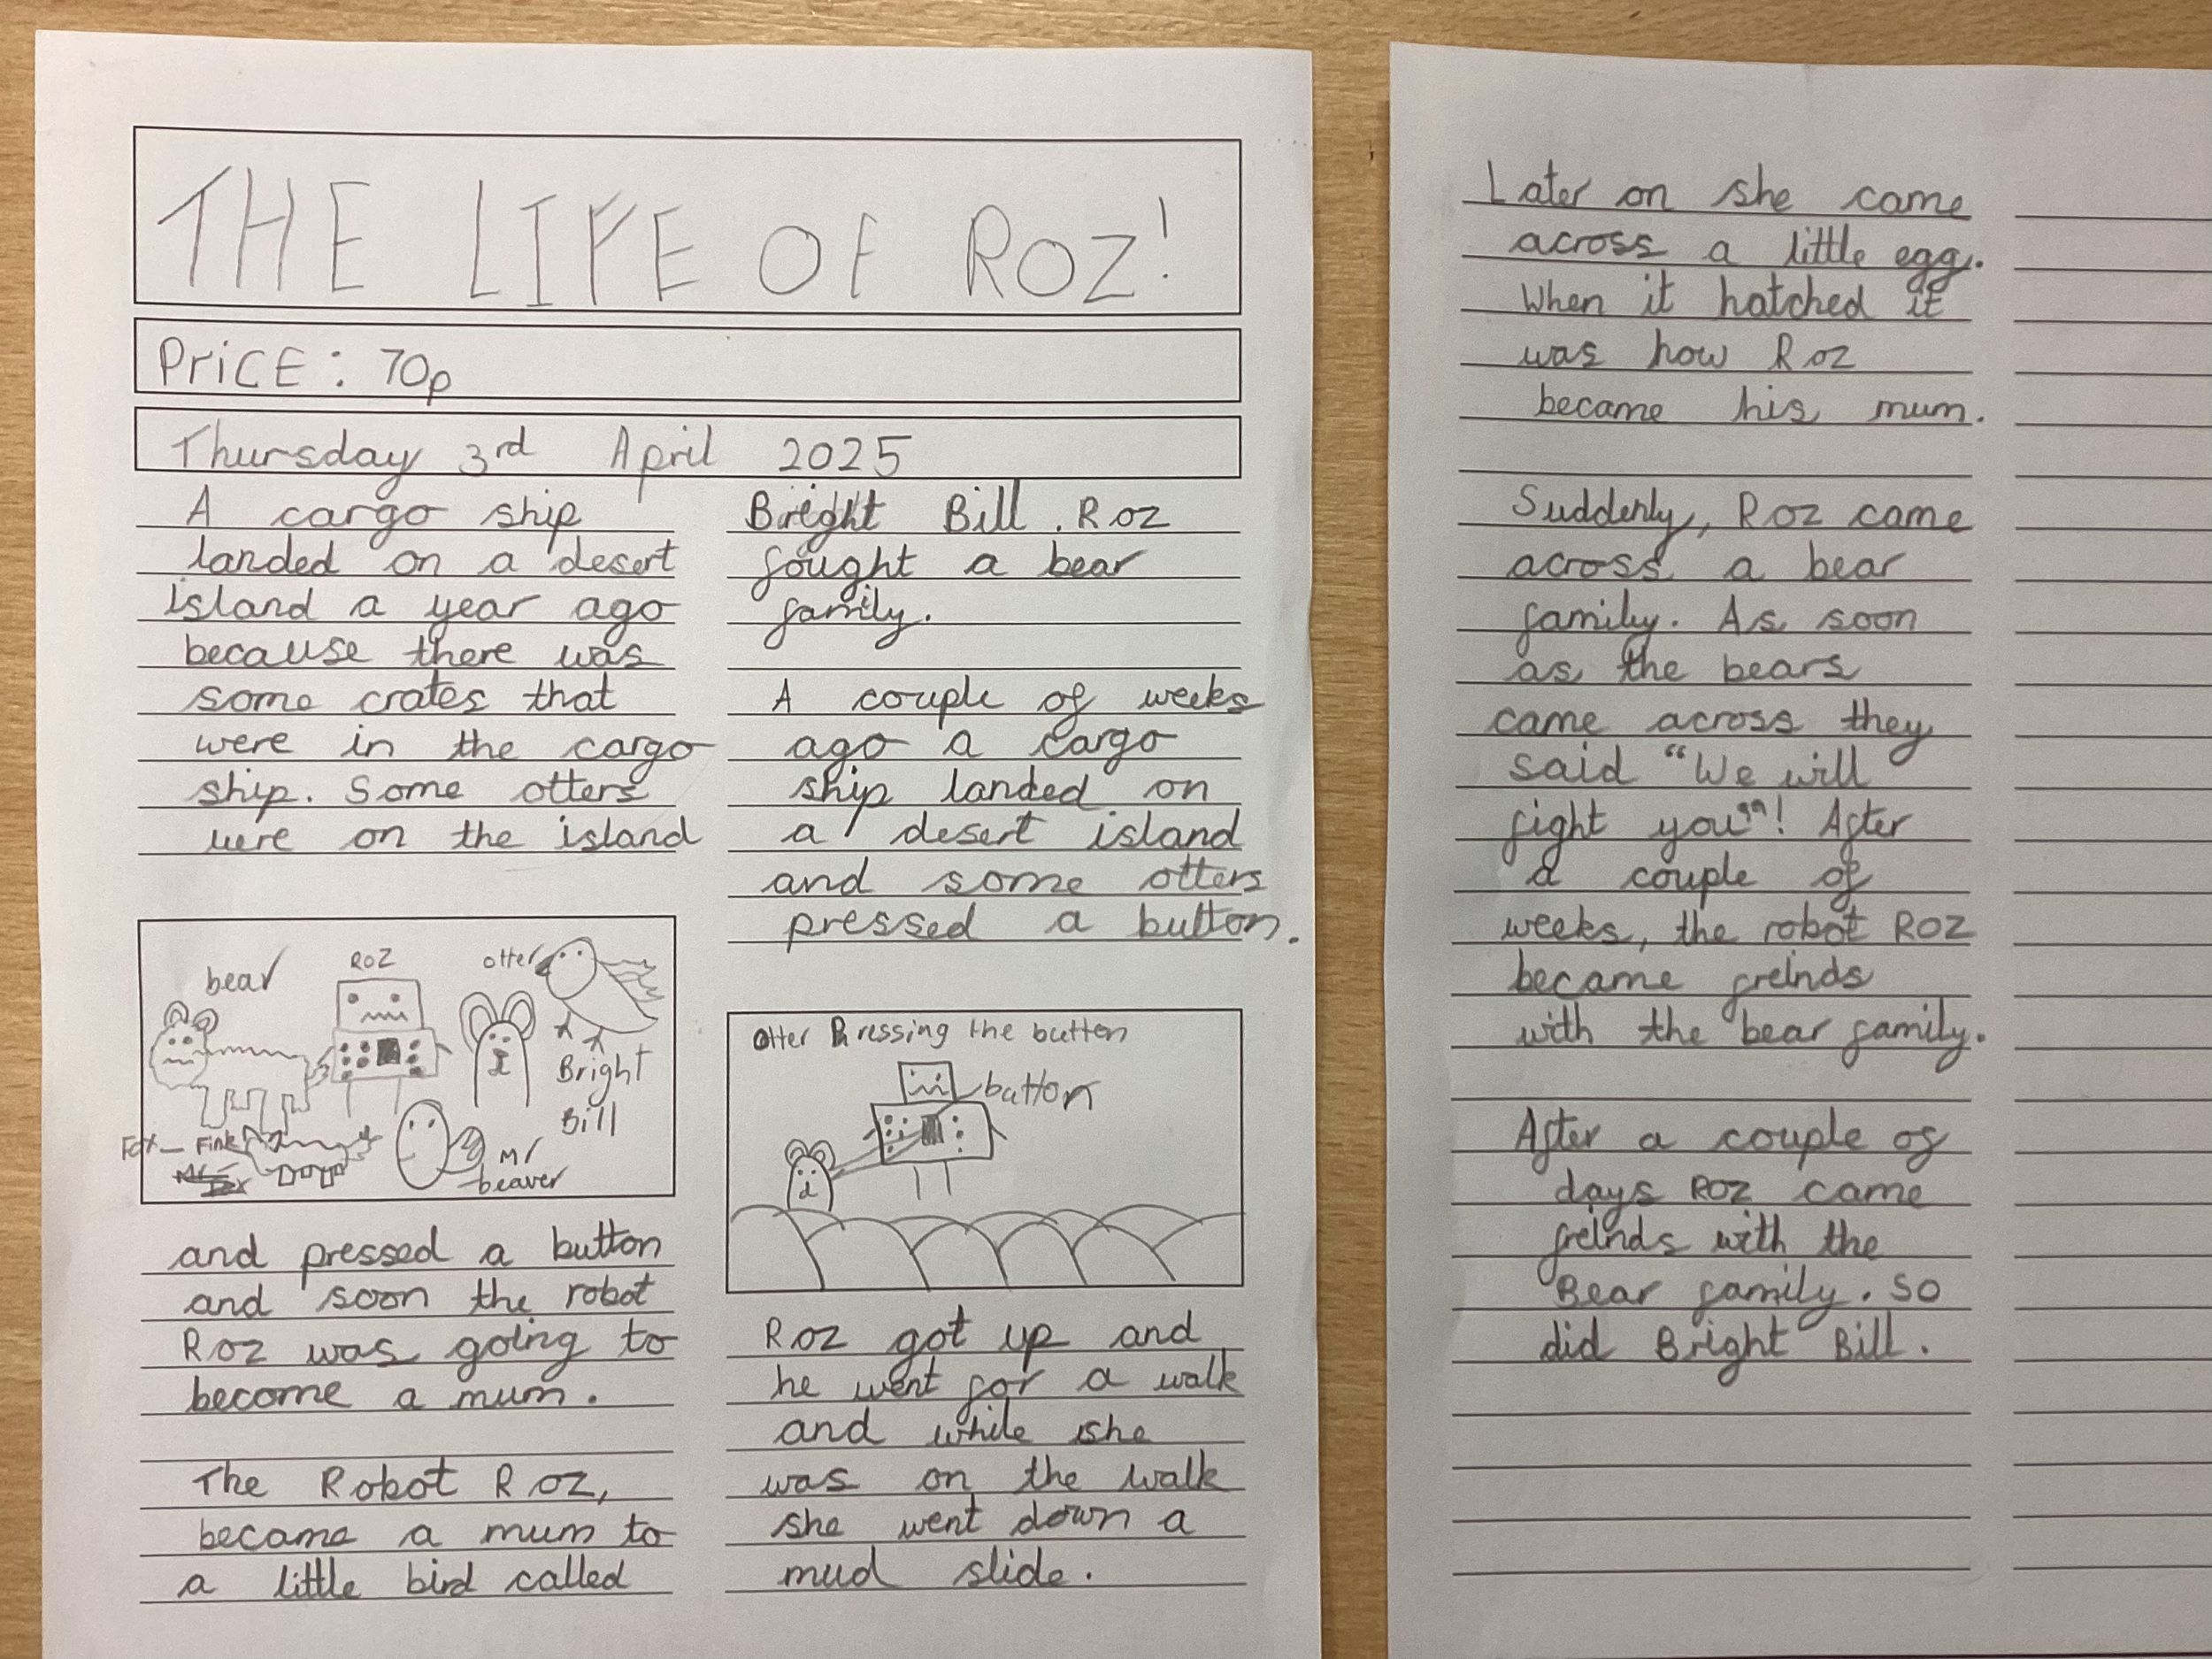 THE LIFE OF ROZ!
PriCE: 70p
Thursday 3rd April 2025
A cargo ship
landed on a desert
island a year ago
because there was
some crates that
were in the cargo
ship. Some otters
were on the island
bear
ROZ
otter
Bright
Bill
Fox - Fink
Mr
beaver
and pressed a button
and soon the robot
Roz was going to
become a mum.
The Robot Roz,
became a mum to
a little bird called
Bright Bill. Roz
fought a bear
family.
A couple of weeks
ago a cargo
ship landed on
a desert island
and some otters
pressed a button.
Otter Pressing the button
button
Roz got up and
he went for a walk
and while she
was on the walk
she went down a
mud slide.
Later on she came
across a little egg.
When it hatched it
was how Roz
became his mum.
Suddenly, Roz came
across a bear
family. As soon
as the bears
came across they
said "We will
fight you"! After
a couple of
weeks, the robot ROZ
became freinds
with the bear family.
After a couple of
days ROZ came
freinds with the
Bear family. So
did Bright Bill.